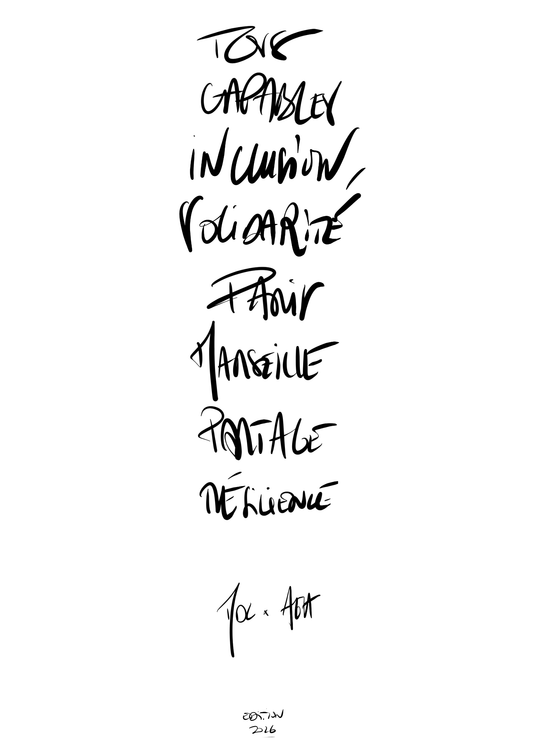 TOUS
CAPABLES
INCLUSION,
SOLIDARITÉ
PARIS
MARSEILLE
PARTAGE
RÉSILIENCE
ADA
EDITION
2026